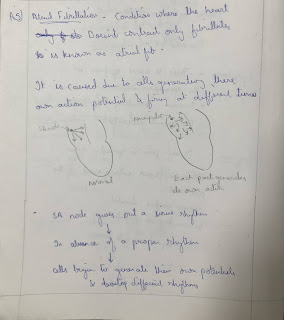 A5) Atrial Fibrillation - Condition where the heart
Doesnt contract only fibrillates
is known as atrial fib.
It is caused due to cells generating there
own action potential & firing at different times
normal
Each part generates
its own action
SA node gives out a sinus rhythm
↓
In absence of a proper rhythm
↓
cells begin to generate their own potentials
& develop different rhythms